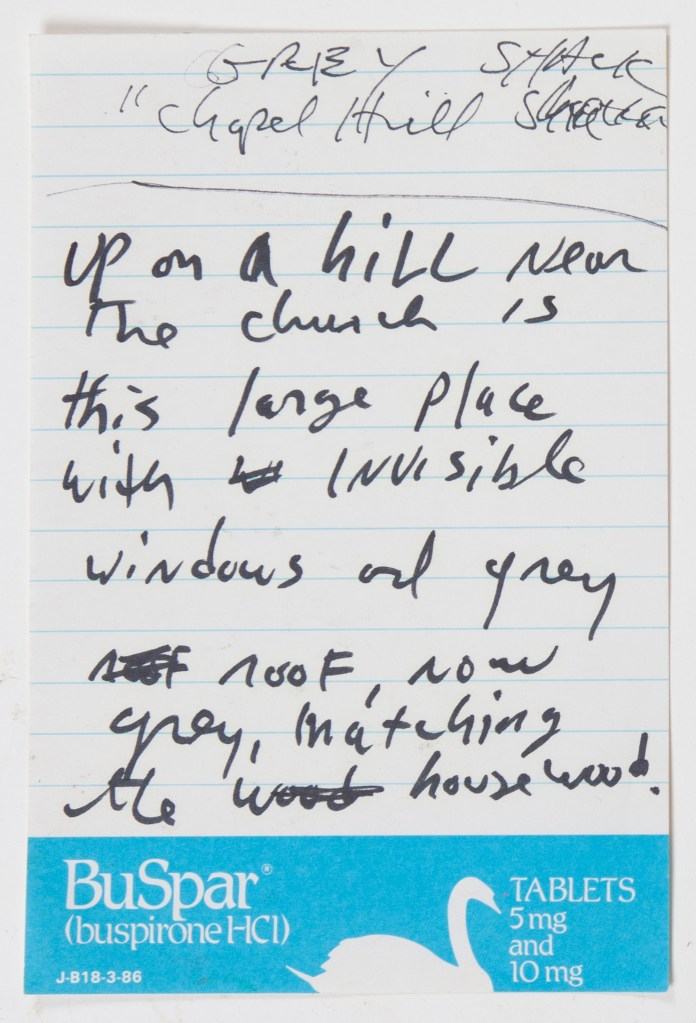 GREY SHACK
"Chapel Hill
up on a hill near
The church is
this large place
with INVISIBLE
windows and grey
roof, now
grey, matching
the housewood.
BuSpar®
(buspirone HCl)
J-B18-3-86
TABLETS
5 mg
and
10 mg